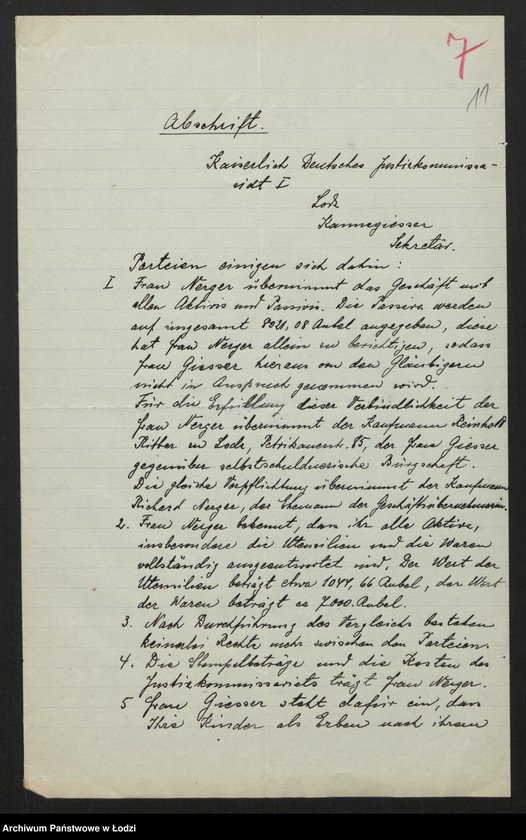 7
11
Abschrift.
Kaiserlich Deutsches Justizkommissa-
riat I
Lodz
Kannegiesser
Sekretär.
Parteien einigen sich dahin:
I Frau Nerger übernimmt das Geschäft mit
allen Aktivis und Passivis. Die Passiva werden
auf insgesamt 8021,08 Rubel angegeben, diese
hat Frau Nerger allein zu berichtigen, sodass
Frau Giesser hieraus von den Gläubigern
nicht in Anspruch genommen wird.
Für die Erfüllung dieser Verbindlichkeit der
Frau Nerger übernimmt der Kaufmann Reinhold
Ritter in Lodz, Petrikauerst. 85, der Frau Giesser
gegenüber selbstschuldnerische Bürgschaft.
Die gleiche Verpflichtung übernimmt der Kaufmann
Richard Nerger, der Ehemann der Geschäftsübernehmerin.
2. Frau Nerger bekennt, dass ihr alle Aktiva,
insbesondere die Utensilien und die Waren
vollständig ausgeantwortet sind. Der Wert der
Utensilien beträgt etwa 1044,66 Rubel, der Wert
der Waren beträgt ca 7.000 Rubel.
3. Nach Durchführung des Vergleichs bestehen
keinerlei Rechte mehr zwischen den Parteien.
4. Die Stempelbeträge und die Kosten des
Justizkommissariats trägt Frau Nerger.
5 Frau Giesser steht dafür ein, dass
Ihre Kinder als Erben nach ihrem
Archiwum Państwowe w Łodzi